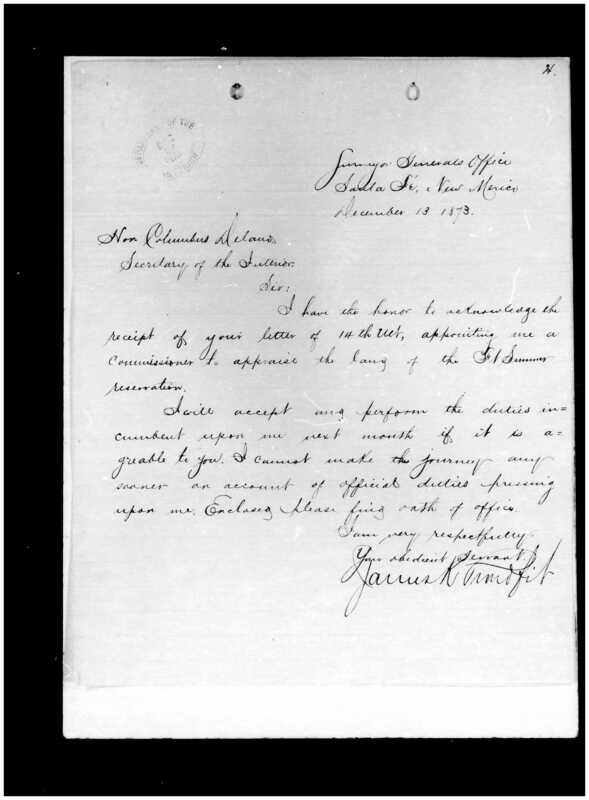 H.
Surveyor Generals Office
Santa Fé, New Mexico
December 13. 1873.
Hon Columbus Delano.
Secretary of the Interior.
Sir:
I have the honor to acknowledge the
receipt of your letter of 14th Ult, appointing me a
commissioner to appraise the land of the Ft Sumner
reservation.
I will accept and perform the duties in=
cumbent upon me next month if it is a=
greable to you. I cannot make the journey any
sooner on account of official duties pressing
upon me. Enclosed please find oath of office.
I am very respectfully
Your obedient servant
James K Proudfit